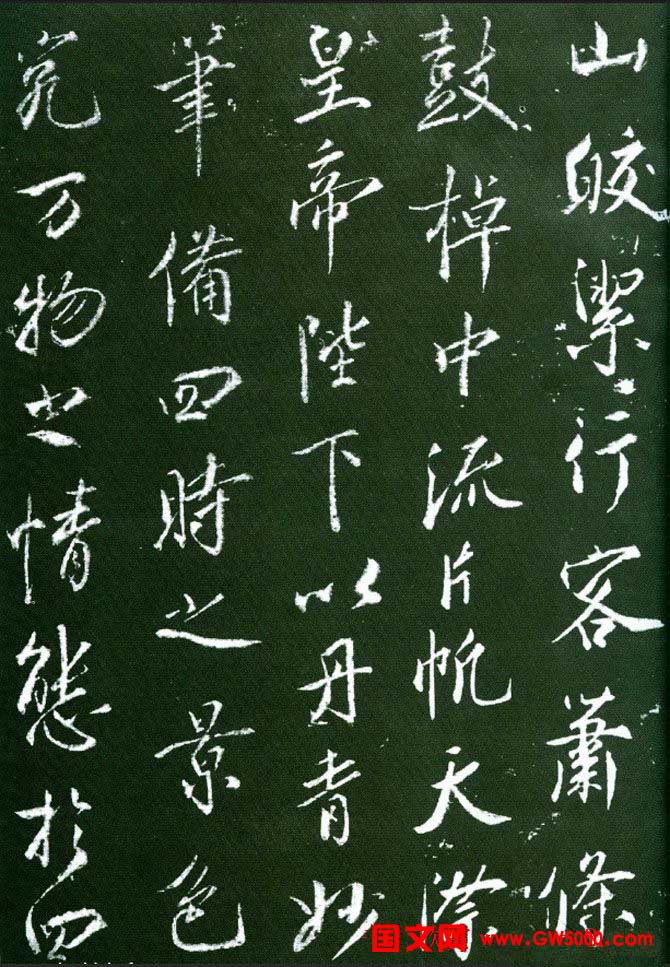 山皎潔行客蕭條
鼓棹中流片帆天際
皇帝陛下以丹青妙
筆備四時之景色
究万物之情態於四
国文网 www.GW5000.com